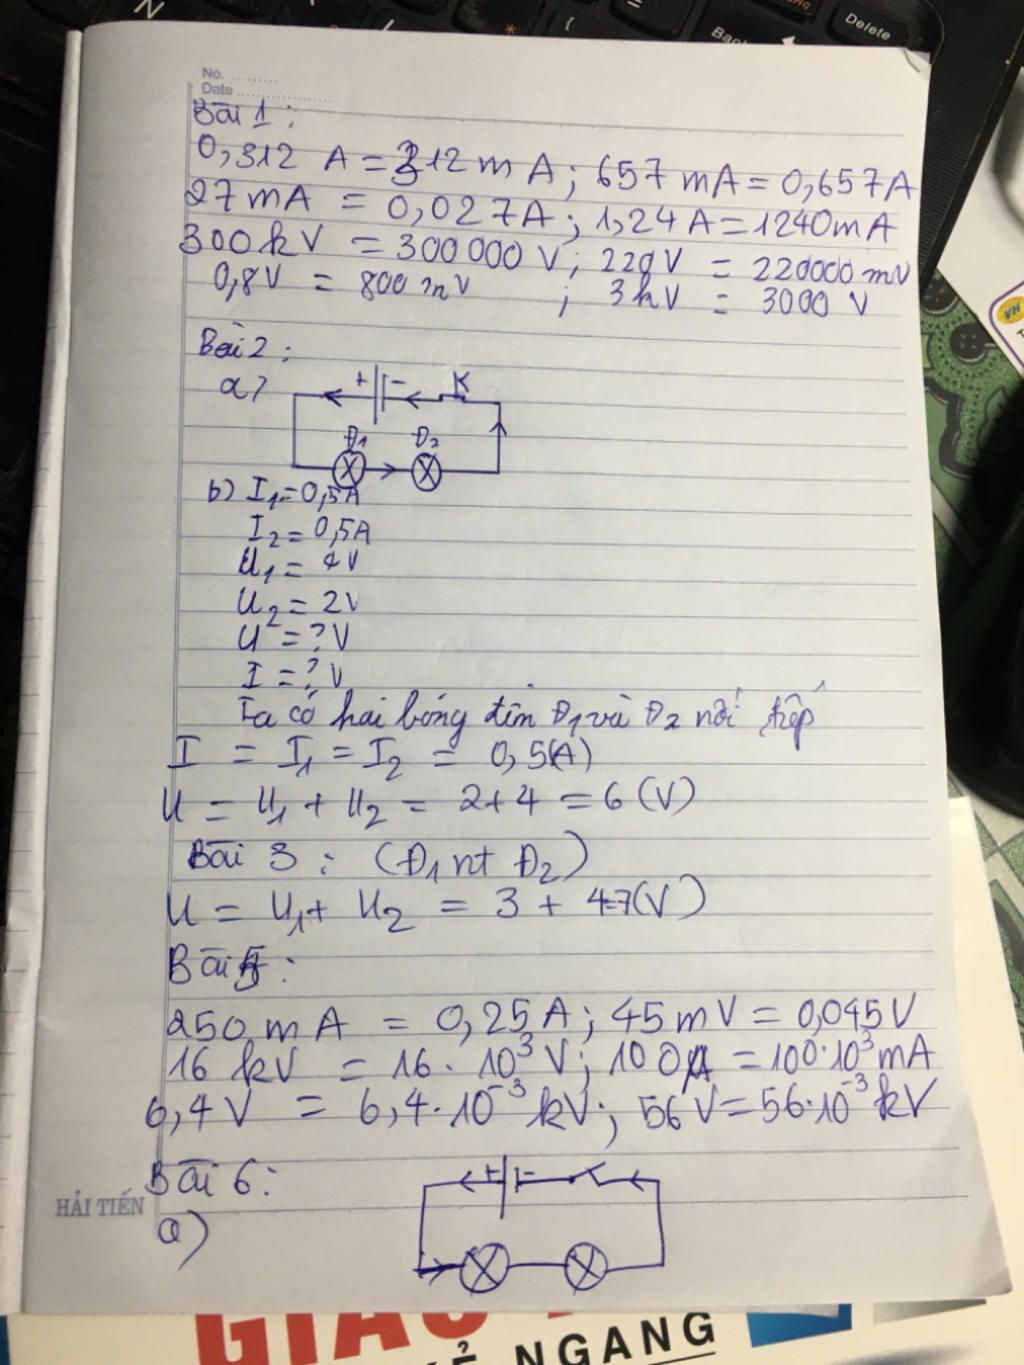 No. ..........
Date ......................
Bài 1 :
0,312 A = 312 m A ; 657 mA = 0,657A
27 mA = 0,027A ; 1,24 A = 1240mA
300 kV = 300 000 V ; 220 V = 220000 mV
0,8V = 800 mV ; 3 kV = 3000 V
Bài 2 :
a)
+ - K
Đ1 Đ2
b) I1 = 0,5A
I2 = 0,5A
U1 = 4V
U2 = 2V
U = ? V
I = ? V
Ta có hai bóng đèn Đ1 và Đ2 nối tiếp
I = I1 = I2 = 0,5(A)
U = U1 + U2 = 2+4 = 6 (V)
Bài 3 : (Đ1 nt Đ2)
U = U1 + U2 = 3 + 4=7(V)
Bài :
250 mA = 0,25A ; 45 mV = 0,045V
16 kV = 16 . 10³ V ; 100A = 100.10³ mA
6,4 V = 6,4.10⁻³ kV ; 56 V = 56.10⁻³ kV
Bài 6 :
+ -
HẢI TIẾN
a)
NGANG
Delete